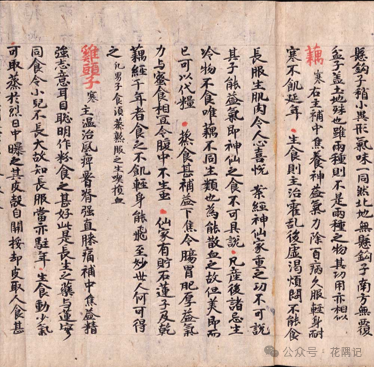 懸鉤子稍小異形氣味一同然北地無懸鉤子南方無覆
盆子盖土地殊也雖兩種則不是兩種之物其功用亦相似
藕 寒 右主補中焦養神益氣力除百病久服輕身耐
寒不飢延年 生食則主治霍亂後虛渴煩悶不能食
長服生肌肉令人心喜悅 案經神仙家重之功不可說
其子能益氣即神仙之食不可具說 凡產後諸忌生
冷物不食唯藕不同生類也為能散血之故但美即而
已可以代糧 蒸食甚補益下焦令腸胃肥厚益氣
力与蜜食相宜令腹中不生虫 仙家有貯石蓮子及乾
藕經千年者食之不飢輕身能飛至妙世人何可得
之 凡男子食須蒸熟服之生喫損血
雞頭子 寒 主溫治風痺腰脊強直膝痛補中焦益精
強志意耳目聰明作粉食之甚好此是長生之藥与蓮實
同食令小兒不長大故知長服當亦駐年 生食動少氣
可取蒸於烈日中曝之其皮殼自開挼却皮取人食甚
公众号 · 花隅记